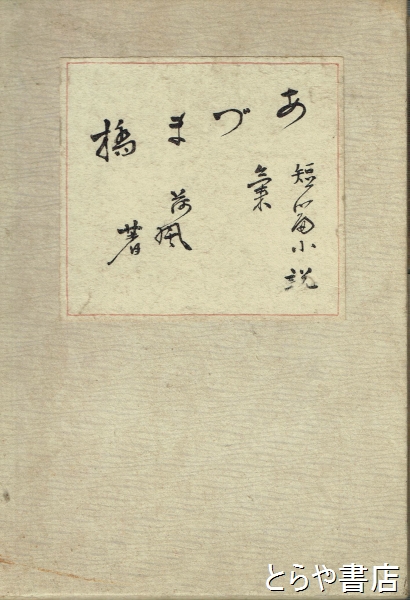 あづま橋
短篇小説
彙
荷風
著
とらや書店